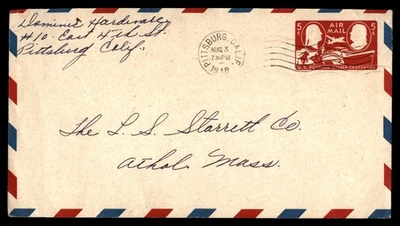 Dominic Hardware
#10 East 4th St.
Pittsburg Calif.
PITTSBURG, CALIF.
AUG 3
7 30 PM
1948
AIR
MAIL
5¢
5¢
U.S. POSTAGE STAMP CENTENARY
The L. S. Starrett Co.
Athol Mass.